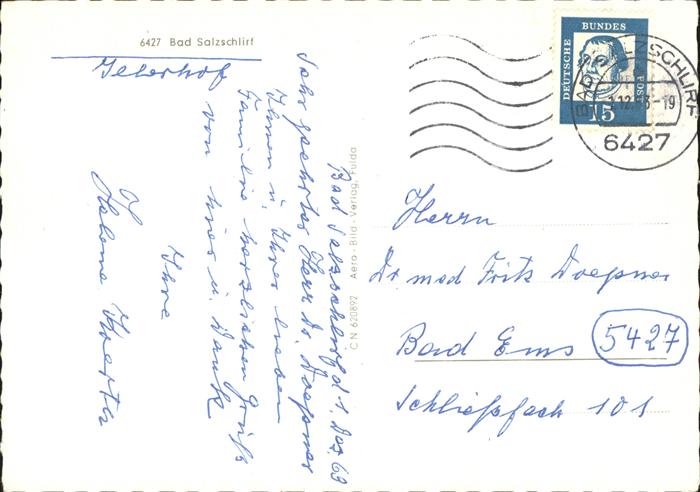 6427 Bad Salzschlirf
Bad Salzschlirf d 1. Dez 63
Sehr geehrter Herr Dr. Doepner
Ihnen u. Ihrer lieben
Familie herzlichen Gruß
von hier u. Dank
Ihre
Helene
CN 620892 Aero-Bild-Verlag, Fulda
DEUTSCHE BUNDES
15
BAD SALZSCHLIRF
6427
Herrn
Dr med Fritz Doepner
Bad Ems 5427
Schließfach 101